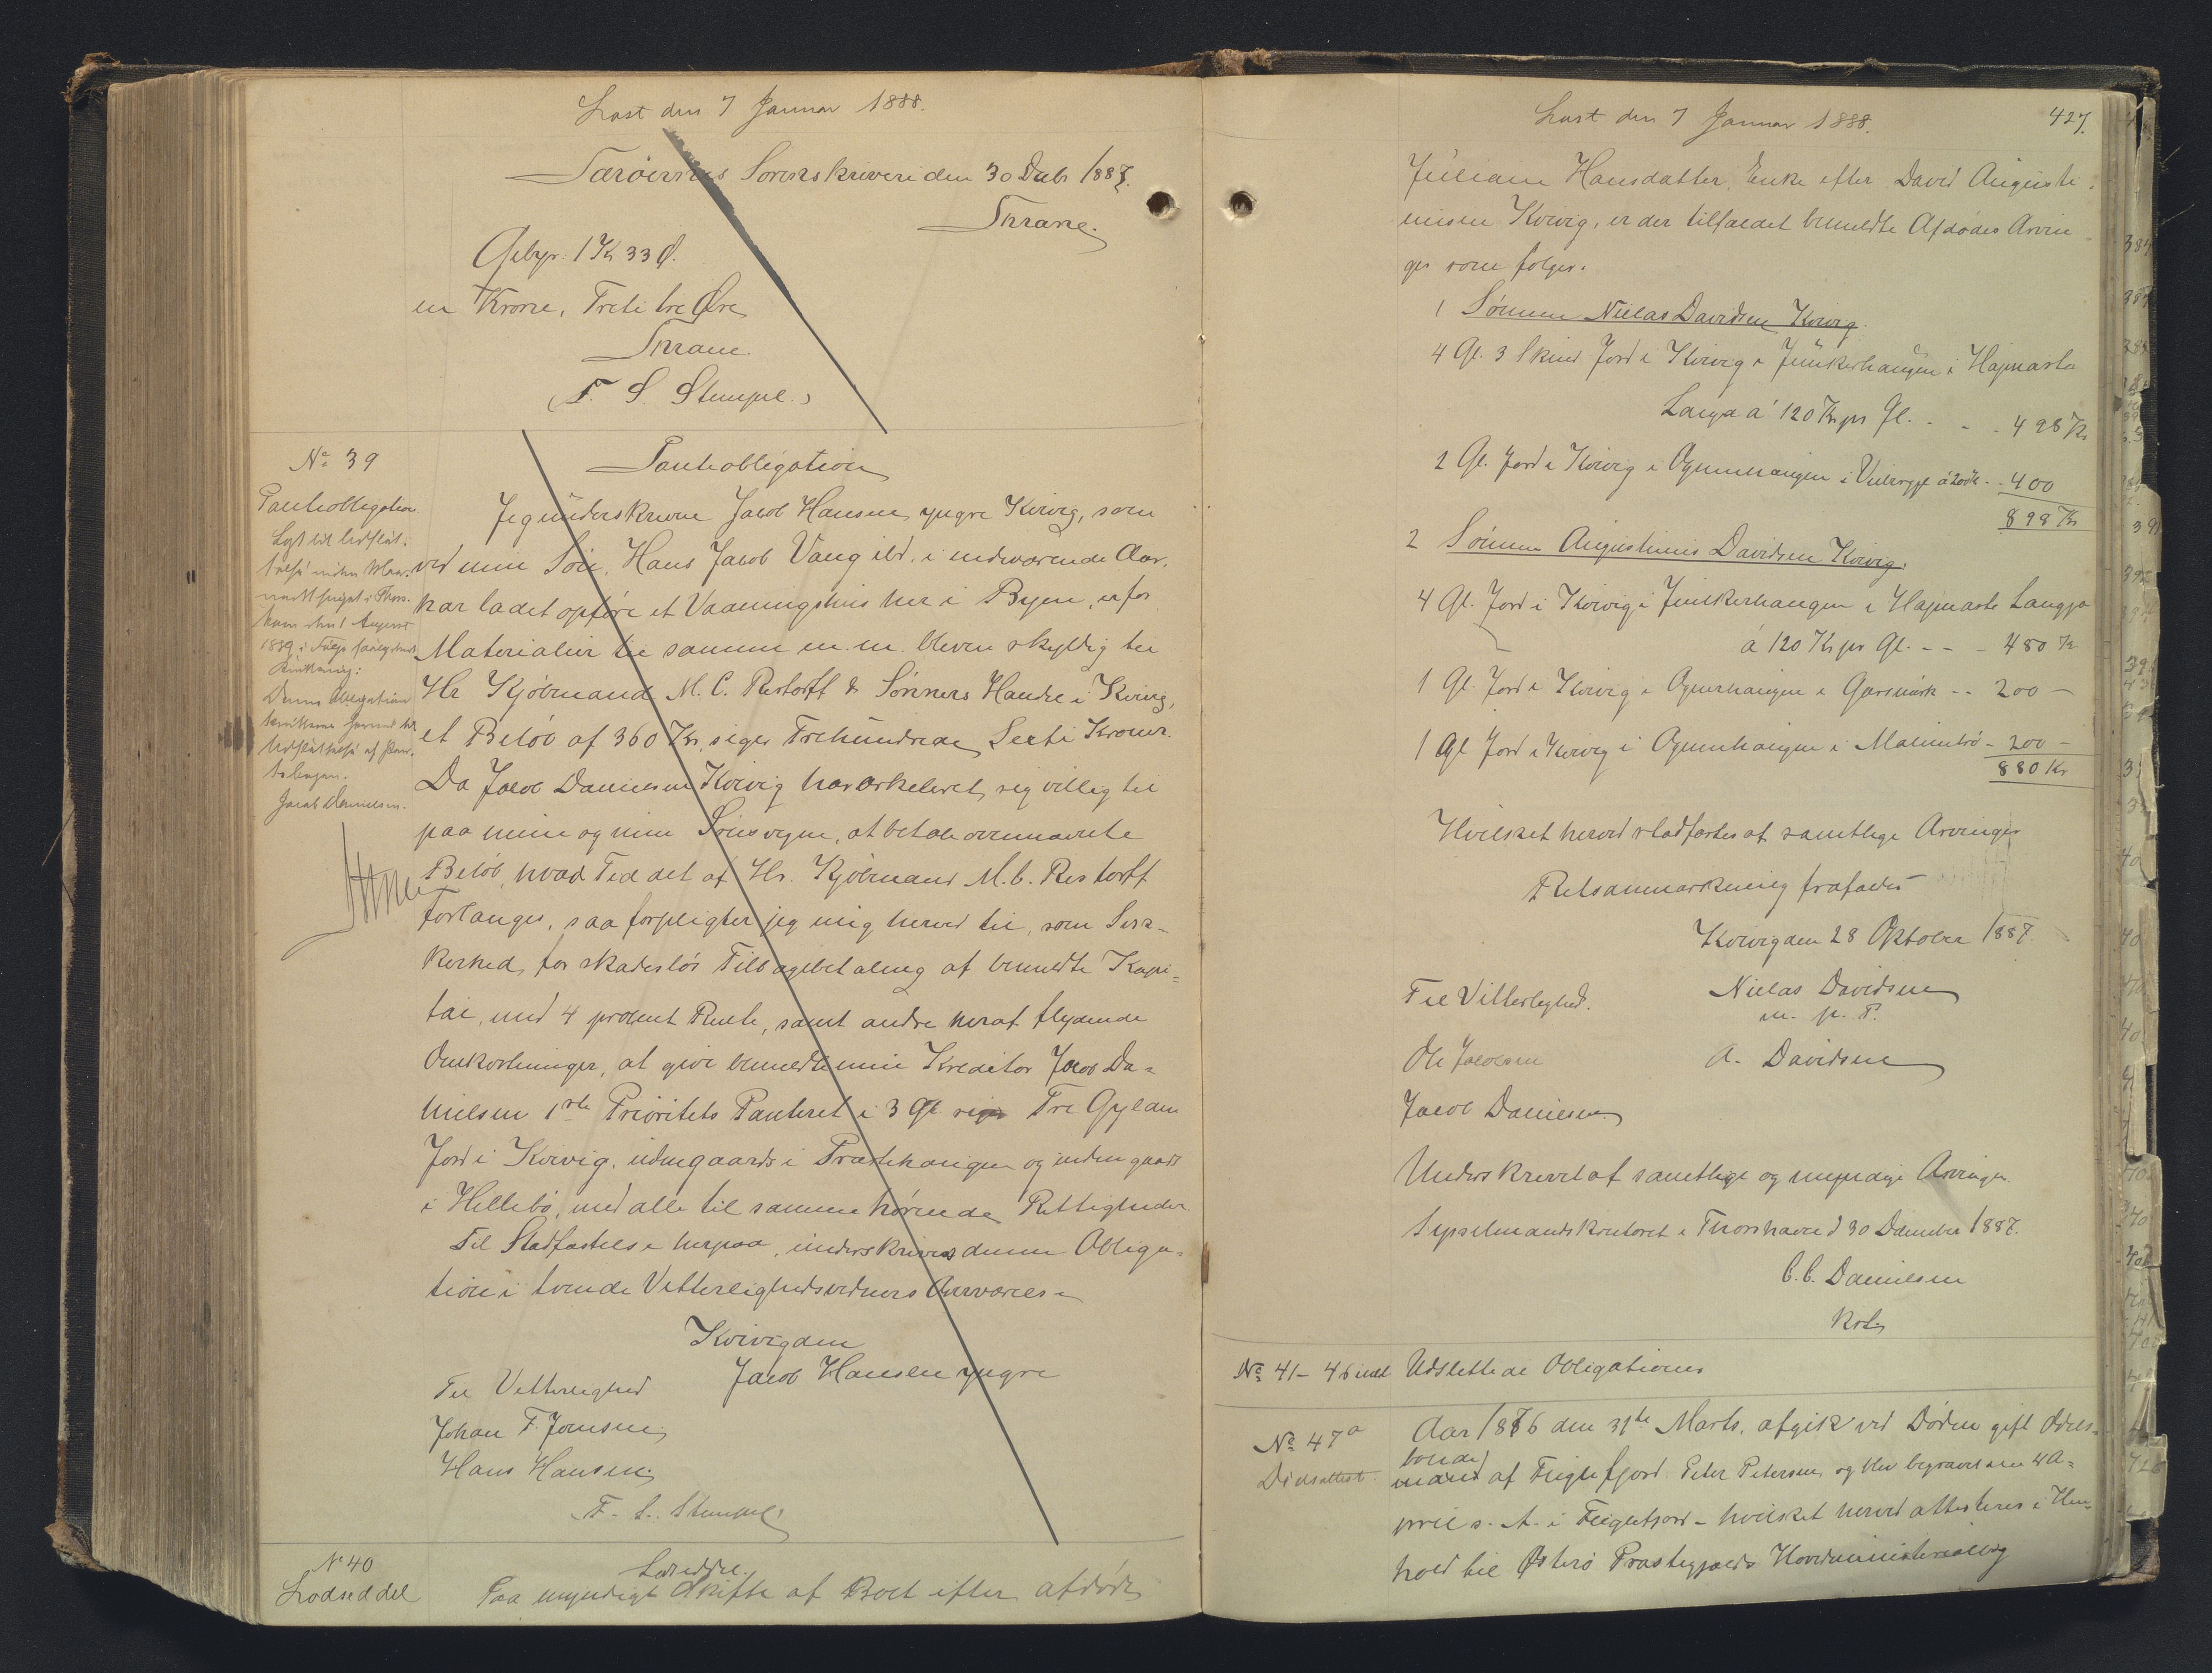 Læst den 7 Januar 1888.
Færøernes Sorenskriveri den 30 Decbr 1887.
Thrane.
Gebyr. 1 Kr 33 Ø.
en Krone, Treti tre Øre
Thrane.
(F. S. Stempel.)
No 39
Pantobligation
Lyst til Udslet-
telse inden Maa-
nedstinget i Thors-
havn den 1 August
1889 i Følge saalydende
Qvittering:
Denne Obligation
kvitteres herved til
Udslettelse af Pan-
tebogen.
Jacob Danielsen.
Pantobligation
Jeg underskrevne Jacob Hansen yngre Kvivig, som
ved min Søn, Hans Jacob Vang ibd. i indeværende Aar,
har ladet opføre et Vaaningshus her i Byen, er for
Materialier til samme m. m. bleven skyldig til
Hr Kjøbmand M. C. Restorff & Sønners Handel i Kvivig,
et Beløb af 360 Kr, siger Trehundrede Sexti Kroner.
Da Jacob Danielsen Kvivig har erkleret sig villig til
paa min og min Søns vegne, at betale ovennævnte
Beløb, hvad Tid det af Hr. Kjøbmand M. C. Restorff
forlanges, saa forpligter jeg mig herved til, som Sik-
kerhed for skadesløs Tilbagebetaling af bemeldte Kapi-
tal, med 4 procent Rente, samt andre heraf flydende
Omkostninger, at give bemeldte min Kreditor Jacob Da-
nielsen 1ste Prioritets Panteret i 3 Gl siger Tre Gylden
Jord i Kvivig, udengaards i Præstehaugen og indengaards
i Hellebø, med alle til samme hørende Rettigheder.
Til Stadfæstelse herpaa, underskrives denne Obliga-
tion i tvende Vitterlighedsvidners Overværelse
Kvivig den
Jacob Hansen yngre
Til Vitterlighed
Johan F. Joensen
Hans Hansen
F. S. Stempel
No 40
Lodseddel
Lodseddel.
Paa myndigt Skifte af Boet efter afdøde
Læst den 7 Januar 1888.
427.
Juliane Hansdatter, Enke efter David Augusti-
nusen Kvivig, er der tilfaldet bemeldte Afdødes Arvin-
ger som følger.
1 Sønnen Nielas Davidsen Kvivig.
4 Gl. 3 Skind Jord i Kvivig i Junkerhaugen i Hajmasta
Langa á 120 Kr pr Gl. - - - 498 Kr
2 Gl. Jord i Kvivig i Ognunhaugen i á 200 Kr. - 400
898 Kr
2 Sønnen Augustinus Davidsen Kvivig.
4 Gl. Jord i Kvivig i Junkerhaugen i Hajmasta Langja
á 120 Kr pr Gl. - - - 480 Kr
1 Gl. Jord i Kvivig i Ognunhaugen i -- 200 -
1 Gl Jord i Kvivig i Ognunhaugen i - 200 -
880 Kr
Hvilket herved stadfæstes af samtlige Arvinger
Retsanmærkning frafaldes
Kvivig den 28 Oktober 1887.
Til Vitterlighed.
Nielas Davidsen
m. p. P.
Ole Jacobsen
A. Davidsen
Jacob Danielsen
Underskrevet af samtlige og myndige Arvinger.
Sysselmandskontoret i Thorshavn d 30 December 1887.
C. C. Danielsen
Kst.
No 41 - 46 incl Udslettede Obligationer
No 47 a
Dødsattest.
Aar 1876 den 31te Marts, afgik ved Døden gift Odels-
bonde
mand af Fuglefjord Peter Petersen, og blev begravet den 4 A-
pril s. A. i Fuglefjord - hvilket herved attesteres i Hen-
hold til Østerø Præstegjælds Hovedministerialbog